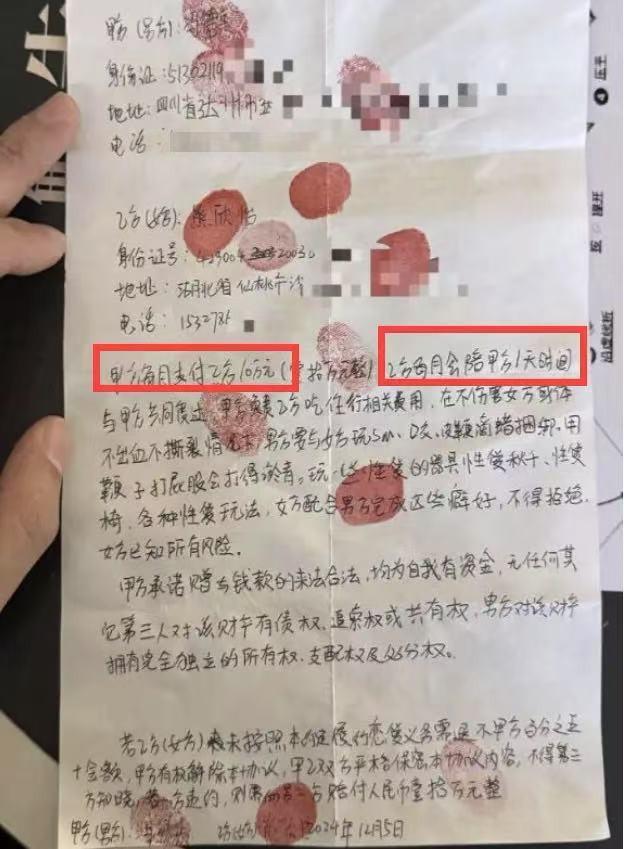 (男方):
身份证:51302119
地址:四川省达州市
电话:
乙方(女方): 欣怡
身份证号: 20030
地址: 湖北省仙桃市沙
电话: 153278
甲方每月支付乙方10万元(壹拾万元整)乙方每月会陪甲方1天时间
与甲方共同度过,甲方负责乙方吃住行相关费用,在不伤害女方身体
不出血不撕裂情况下,男方要与女方玩sm、 皮鞭滴蜡捆绑、用
鞭子打屁股会打得淤青。玩一些性爱的器具性爱秋千、性爱
椅、各种性爱玩法,女方配合男方完成这些癖好,不得拒绝.
女方已知所有风险。
甲方承诺赠与钱款的来法合法,均为自我有资金,无任何其
它第三人对该财产有债权、追索权或共有权,男方对该财产
拥有完全独立的所有权、支配权及处分权。
若乙方(女方) 未按照本 履行恋爱义务需退 甲方百分之五
十金额,甲方有权解除本协议,甲乙双方严格保密本协议内容,不得第三
方知晓, 一方违约,则需 另一方赔付人民币壹拾万元整
甲方(男方): 2024年12月5日